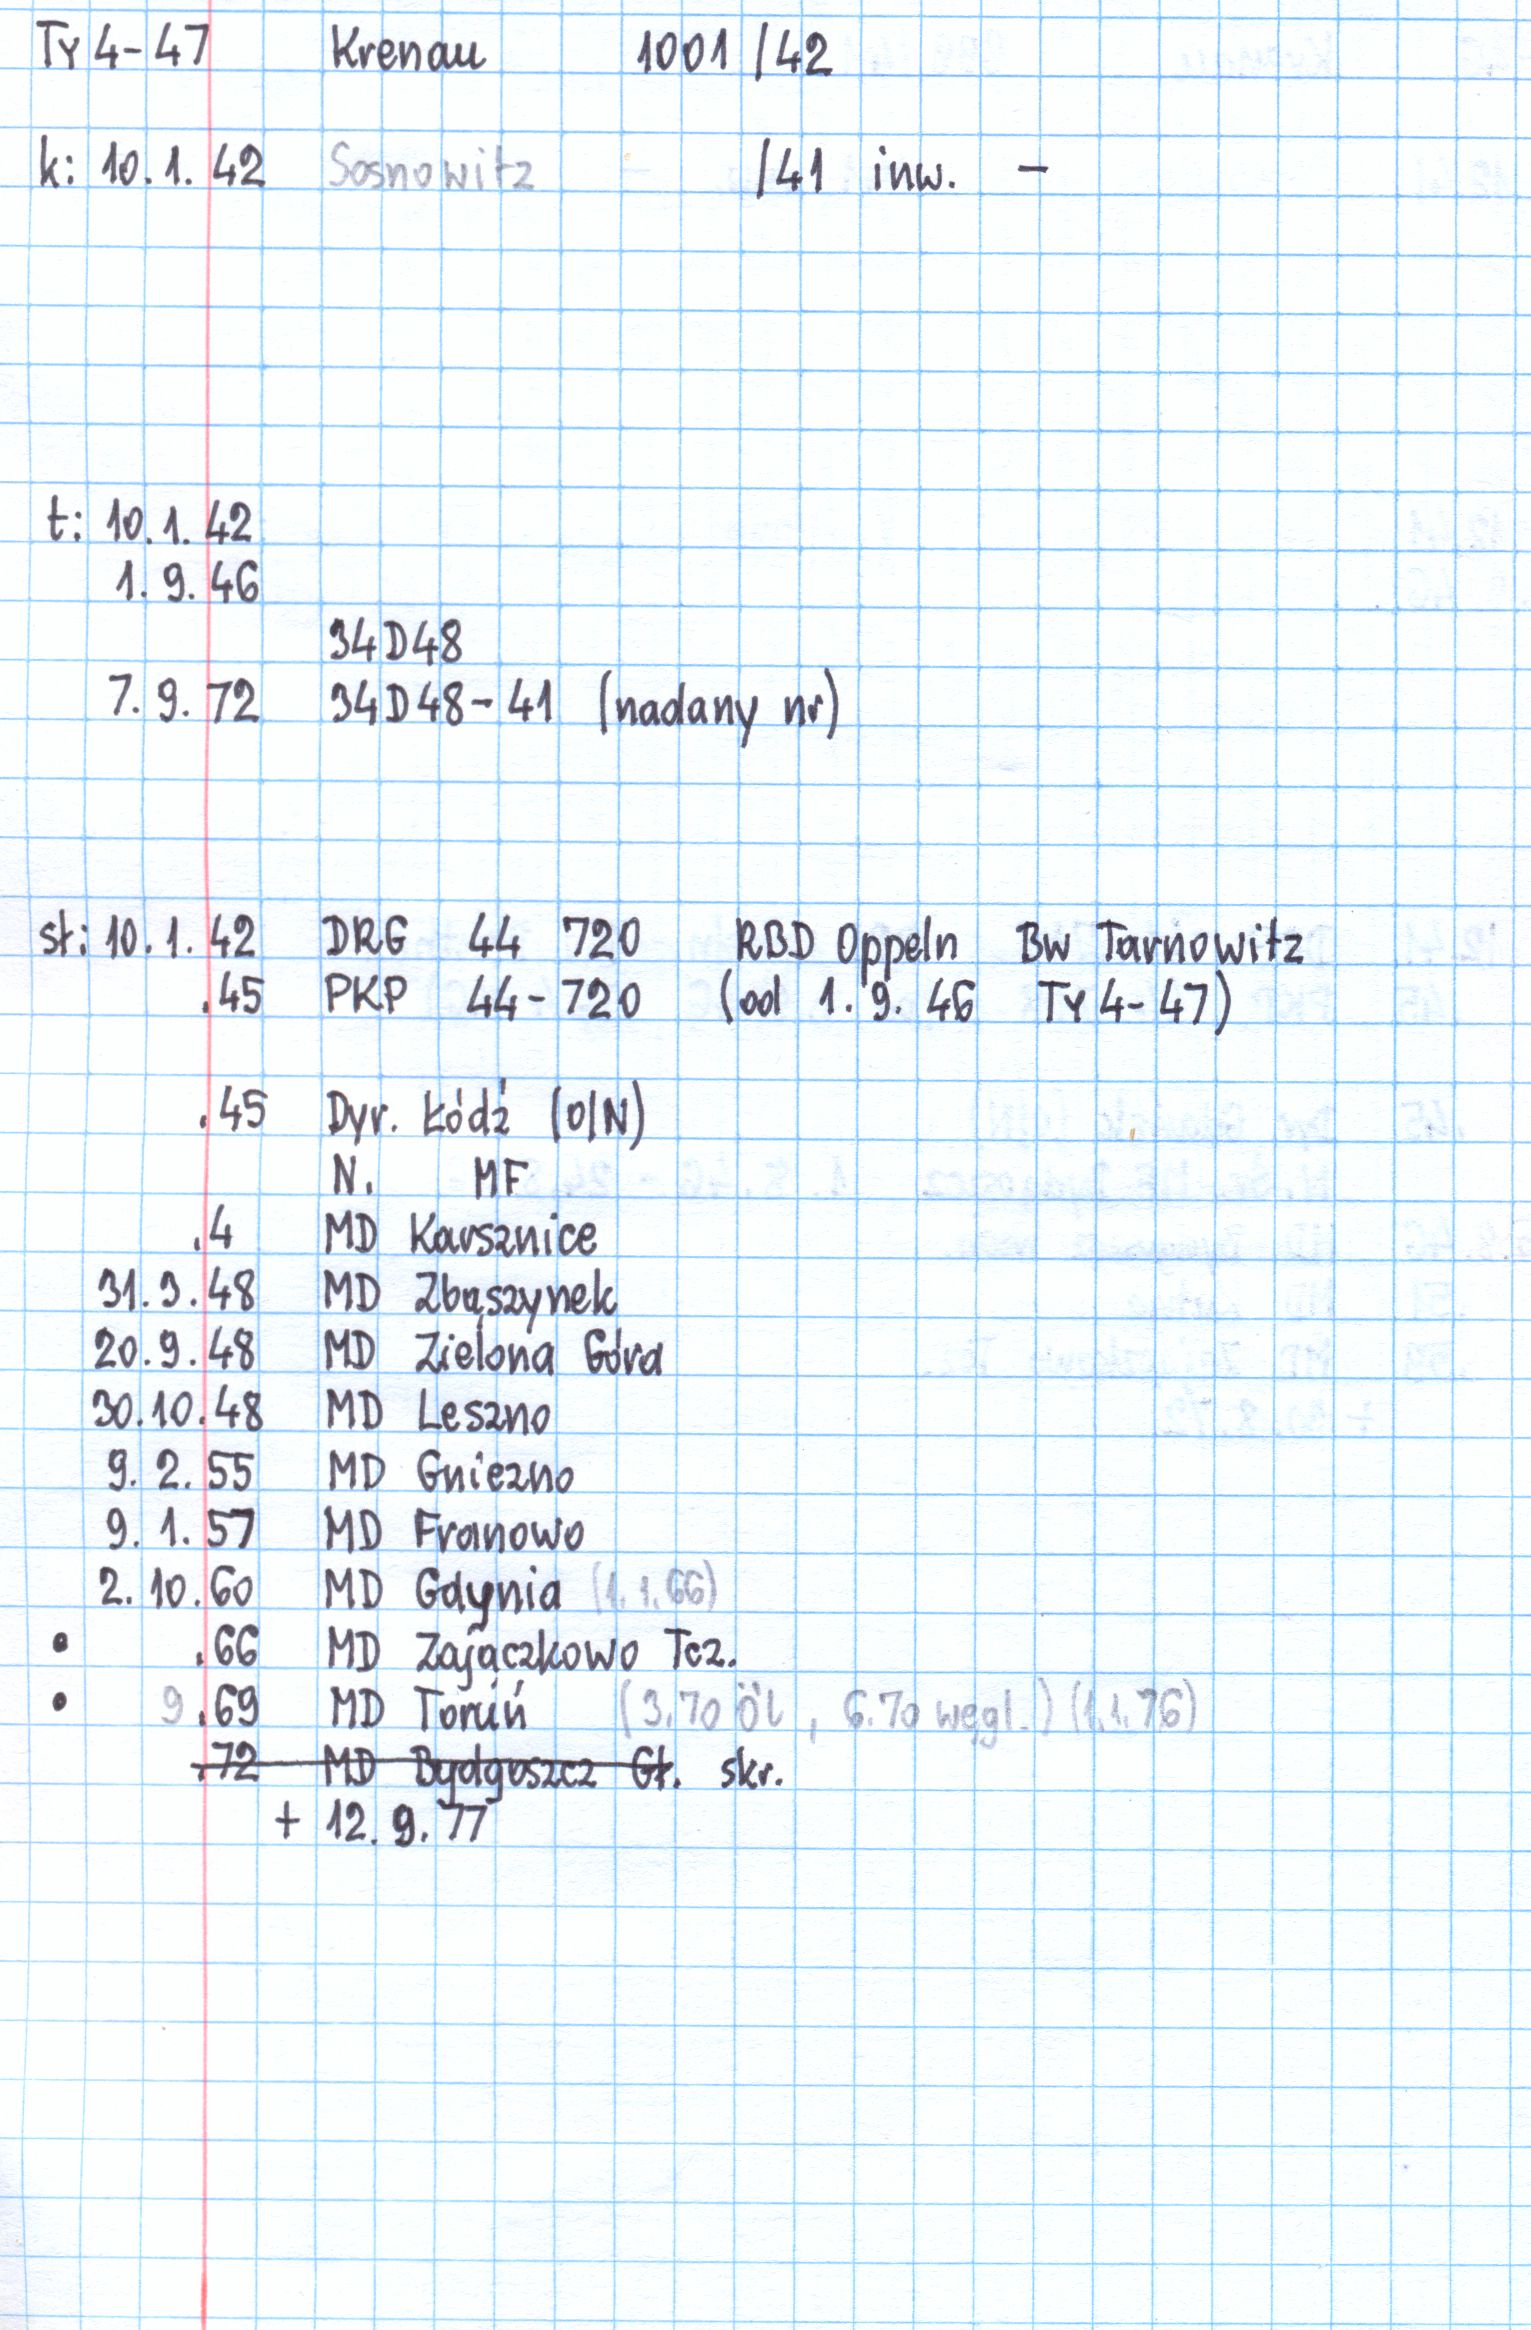 Ty 4-47 Krenau 1001 /42
k: 10.1.42 Sosnowitz - /41 inw. -
t: 10.1.42
1.9.46
34D48
7.9.72 34D48-41 (nadany nr)
st: 10.1.42 DRG 44 720 RBD Oppeln Bw Tarnowitz
.45 PKP 44-720 (od 1.9.46 Ty 4-47)
.45 Dyr. Łódź (O/N)
N. MF
.4 MD Karsznice
31.3.48 MD Zbąszynek
20.9.48 MD Zielona Góra
30.10.48 MD Leszno
9.2.55 MD Gniezno
9.1.57 MD Franowo
2.10.60 MD Gdynia (1.1.66)
• .66 MD Zajączkowo Tcz.
• 9.69 MD Toruń (3.70 Öl, 6.70 węgl.) (1.1.76)
.72 MD Bydgoszcz Gł. skr.
+ 12.9.77